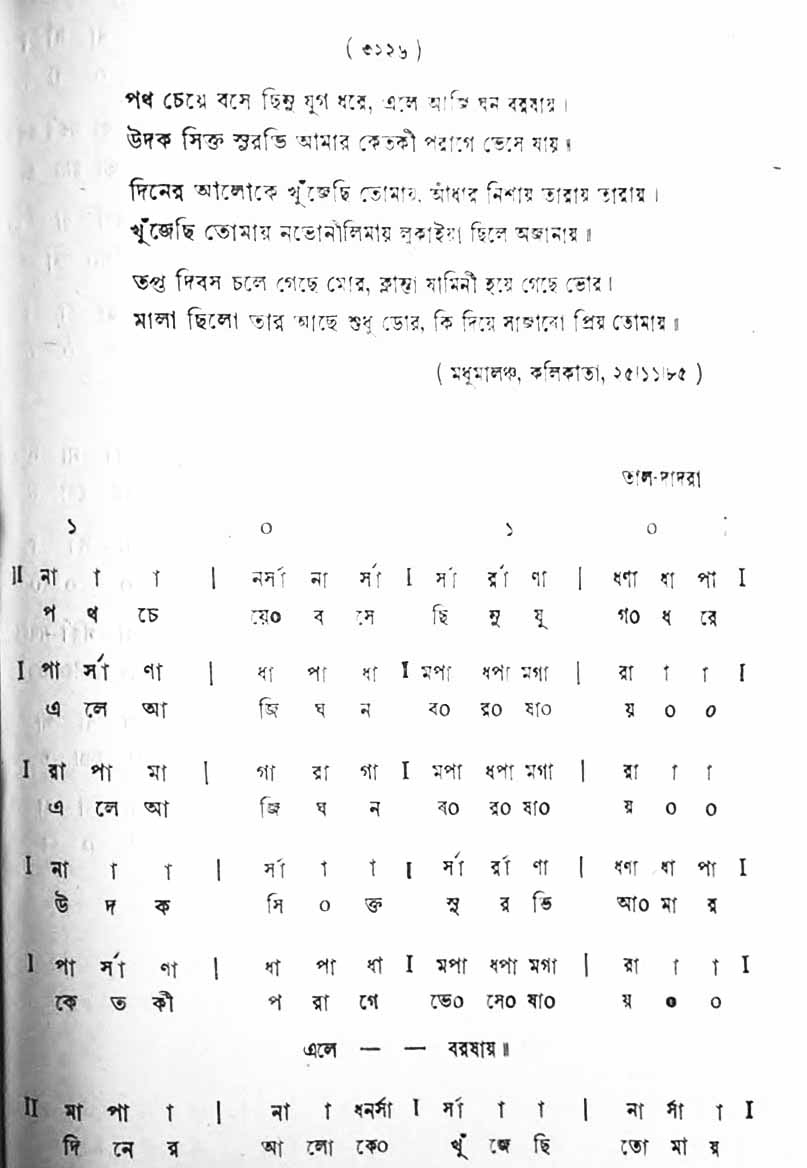 ( ৩১২৬ )
পথ চেয়ে বসে ছিনু যুগ ধরে, এলে আজি ঘন বরষায় ।
উদক সিক্ত সুরভি আমার কেতকী পরাগে ভেসে যায় ॥
দিনের আলোকে খুঁজেছি তোমায়, আঁধার নিশায় তারায় তারায় ।
খুঁজেছি তোমায় নভোনীলিমায় লুকাইয়া ছিলে অজানায় ॥
তপ্ত দিবস চলে গেছে মোর, ক্লান্ত যামিনী হয়ে গেছে ভোর ।
মালা ছিলো তার আছে শুধু ডোর, কি দিয়ে সাজাবো প্রিয় তোমায় ॥
( মধুমালঞ্চ, কলিকাতা, ২৫।১১।৮৫ )
তাল-দাদরা
১ ০ ১ ০
II না া া | নর্সা না র্সা I র্সা র্রা ণা | ধণা ধা পা I
প থ চে য়ে০ ব সে ছি নু যু গ০ ধ রে
I পা র্সা ণা | ধা পা ধা I মপা ধপা মগা | রা া া I
এ লে আ জি ঘ ন ব০ র০ ষা০ য় ০ ০
I রা পা মা | গা রা গা I মপা ধপা মগা | রা া া
এ লে আ জি ঘ ন ব০ র০ ষা০ য় ০ ০
I না া া | র্সা া া I র্সা র্রা ণা | ধণা ধা পা I
উ দ ক সি ০ ক্ত সু র ভি আ০ মা র
I পা র্সা ণা | ধা পা ধা I মপা ধপা মগা | রা া া I
কে ত কী প রা গে ভে০ সে০ যা০ য় ০ ০
এলে — — বরষায় ॥
II মা পা া | না া ধনর্সা I র্সা া া | না র্সা া I
দি নে র আ লো কে০ খুঁ জে ছি তো মা য়